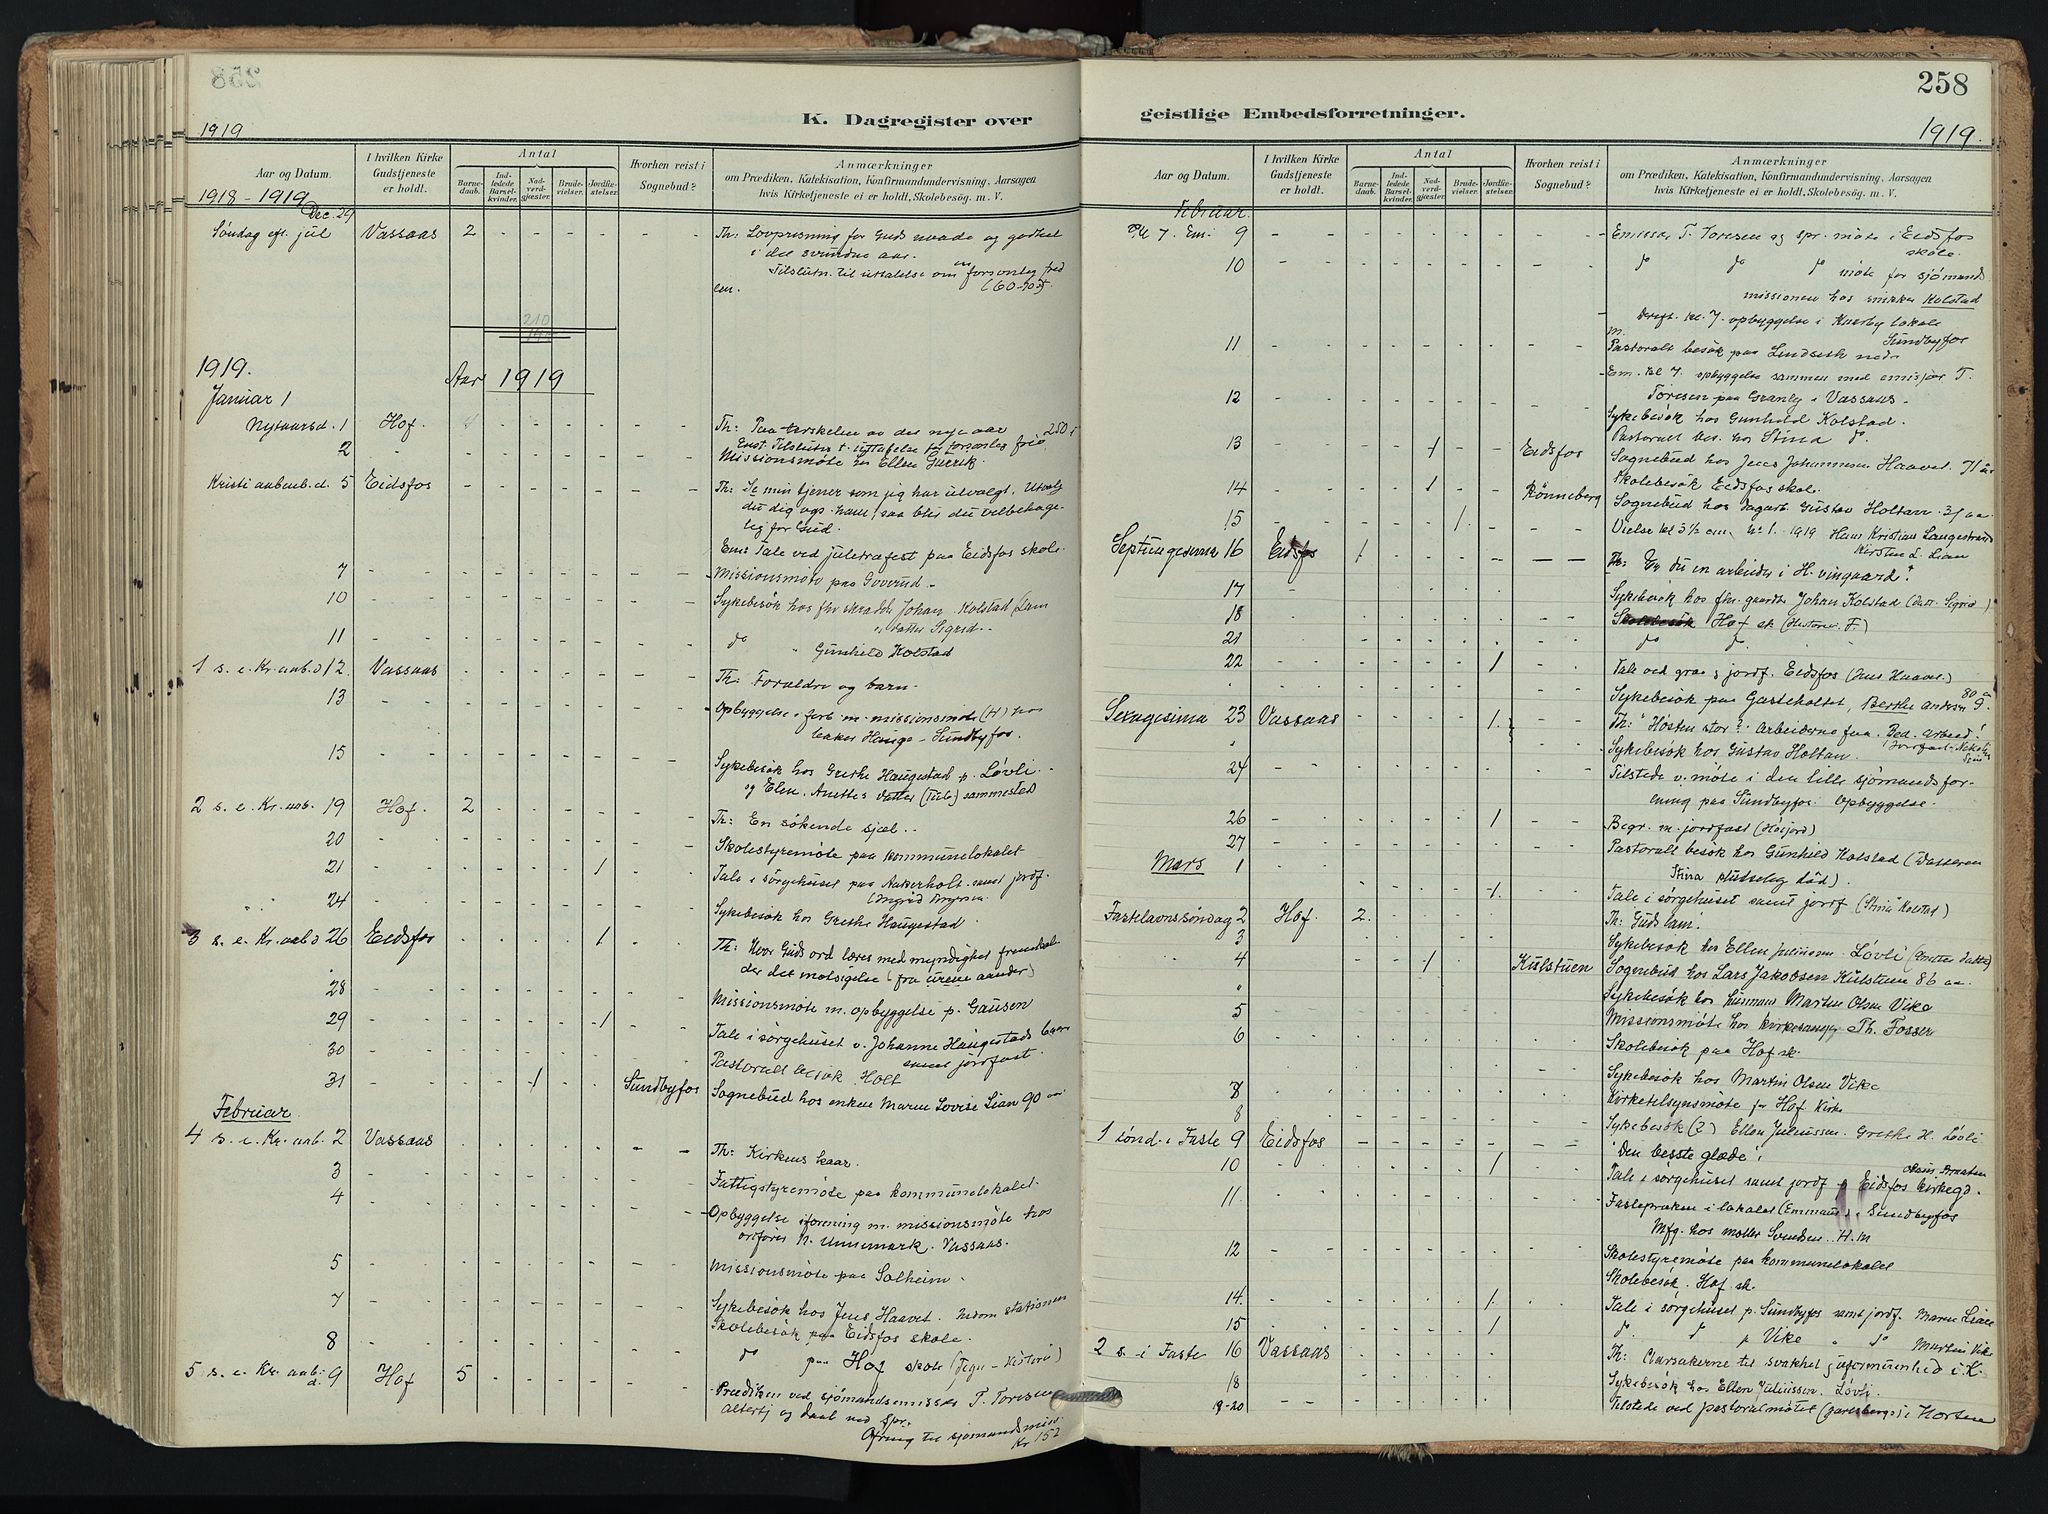 258
K. Dagregister over
geistlige Embedsforretninger.
1919
1919.
Aar og Datum.
I hvilken Kirke Gudstjeneste er holdt.
Antal
Barnedaab.
Indledede Barselkvinder.
Nadverdgjester.
Brudevielser.
Jordfæstelser.
Hvorhen reist i Sognebud?
Anmærkninger
om Prædiken, Katekisation, Konfirmandundervisning, Aarsagen
hvis Kirketjeneste ei er holdt, Skolebesøg. m. V.
1918 - 1919
Dec. 29
Søndag ef. jul Vassaas 2 Th: Lovprisning for Guds naade og godhet
i det svundne aar.
Tilslutn. til uttalelse om en forsonleg fred
em. (60-70)
210
1919.
Aar 1919
Januar 1
Nytaarsd. 1 Hof. Th: Paa terskelen av det nye aar 250
Missionsmøte hos Ellen
2
Kristi aabenb. d. 5 Eidsfos Th: Se min tjener som jeg har utvalgt. Utvælg
du dig ogs. ham, saa blir du velbehage-
lig for Gud.
Em: Tale ved juletræfest paa Eidsfos skole.
7 Missionsmøte paa Goverud
10 Sykebesøk hos Johan Kolstad
datter Sigrid.
11 do Gunhild Kolstad
1 s. e. Kr. aab. d 12. Vassaas Th: Foreldre og barn.
13 Opbyggelse i forb. m. missionsmøte (H) hos
baker Hauge - Sundbyfos.
15 Sykebesøk hos Grethe Haugestad p. Løvli.
og Elen, Anettes datter sammested
2 s. e. Kr. aab. 19 Hof. 2 Th: En søkende sjæl.
20 Skolestyremøte paa kommunelokalet
21 1 Tale i sørgehuset paa Aakerholt samt jordf.
24 Sykebesøk hos Grethe Haugestad
3 s. e. Kr. aab d 26 Eidsfos 1 Th: Hvor Guds ord læres med myndighet fremkal-
der det motsigelse (fra urene aander)
28 Missionsmøte m. opbyggelse p. Gausen
29 1 Tale i sørgehuset v. Johanne Haugestads baare
samt jordfæst.
30 Pastoralt besøk Holt
31 1 Sundbyfos Sognebud hos enken Maren Lovise Lian 90 aar
Februar
4 s. e. Kr. aab. 2 Vassaas Th: Kirkens kaar.
3 Fattigstyremøte paa kommunelokalet.
4 Opbyggelse i forening m. missionsmøte hos
N. Unnemark. Vassaas.
5 Missionsmøte paa Solheim
7 Sykebesøk hos Jens Haavet. stationen
Skolebesøk paa Eidsfos skole.
8 do paa Hof skole (Tegn - Historie)
5 s. e. Kr. aab. d. 9 Hof 5 Prædiken ved sjømandsemissær T. Toresen
Altertj og daab ved Spr.
Ofring til sjømandsmiss.
Kr 152
258
Aar og Datum.
I hvilken Kirke Gudstjeneste er holdt.
Antal
Barnedaab.
Indledede Barselkvinder.
Nadverdgjester.
Brudevielser.
Jordfæstelser.
Hvorhen reist i Sognebud?
Anmærkninger
om Prædiken, Katekisation, Konfirmandundervisning, Aarsagen
hvis Kirketjeneste ei er holdt, Skolebesøg. m. V.
Februar.
Kl 7. Em. 9 Emissær T. Toresen og spr. møte i Eidsfos
skole.
10 do do do møte for sjømands
missionen hos snikker Kolstad
Dereft. kl. 7. opbyggelse i lokale
Sundbyfos
11 Pastoralt besøk paa
Em. kl 7. opbyggelse sammen med emisær T.
Toresen paa Granly i Vassaas.
12 Sykebesøk hos Gunhild Kolstad.
Pastoralt bes. hos Stina do.
13 1 Eidsfos Sognebud hos Jens Johannesen Haavet. 71 aar
Skolebesøk Eidsfos skole.
14 1 Rønneberg Sognebud hos dagarb. Gustav Holtan. 31 aa.
15 1. Vielse kl 3½ em. No 1. 1919 Hans Kristian Langestrand
Kirsten L. Lian
Septuagesima 16 Eidsfos 1 Th: "Gr du en arbeider i H. vingaard?"
17 Sykebesøk hos Johan Kolstad (datt. Sigrid)
18 Hof sk (Historie. F.)
21 do do
22 1 Tale ved grav & jordf. Eidsfos (Jens Haavet.)
Sykebesøk paa Gasteholtet, Berthe Andersen 80 a
Sexagesima 23 Vassaas 1. Th: "Høsten stor". Arbeiderne faa. Bed. Arbeid!
Sykebesøk hos Gustav Holtan.
24 Tilstede v. møte i den lille sjømandsfor-
ening paa Sundbyfos. Opbyggelse.
26 1 Begr. m. jordfæst
27 Pastoralt besøk hos Gunhild Kolstad (Datteren
Stina pludselig død).
Mars 1 1. Tale i sørgehuset samt jordf (Stina Kolstad)
Fastelavnssøndag 2 Hof. 2. Th: Guds lam!
3 Sykebesøk hos Ellen Juliussen Løvli (Anettes datter)
4 1 Kulstuen Sognebud hos Lars Jakobsen Kulstuen 86 aa.
Sykebesøk hos Martin Olsen Vike
5 Missionsmøte hos kirkesanger Th. Fosser
6 Skolebesøk paa Hof sk.
Sykebesøk hos Martin Olsen Vike
7 Kirketilsynsmøte for Hof Kirke
8 Sykebesøk (2) Ellen Juliussen. Grethe H. Løvli
1 sønd. i Faste 9 Eidsfos "Den beste glæde"
10 1 Tale i sørgehuset samt jordf p Eidsfos kirkegd.
11 Fastepræken i lokalet (Emmaus) i Sundbyfos
Mfg. hos møller Svendsen. H. M
12 Skolestyremøte paa kommunelokalet
Skolebesøk. Hof sk.
14. 1. Tale i sørgehuset p. Sundbyfos samt jordf. Maren Lian
15 1 do. do p Vike " do Martin Vike
2 s. i Faste 16 Vassaas Th: Aarsakerne til svakhet & uformuenhed i K.
18 Sykebesøk hos Ellen Juliussen. Løvli.
19-20 Tilstede ved pastoralmøtet (Jarlsbergs) i Horten